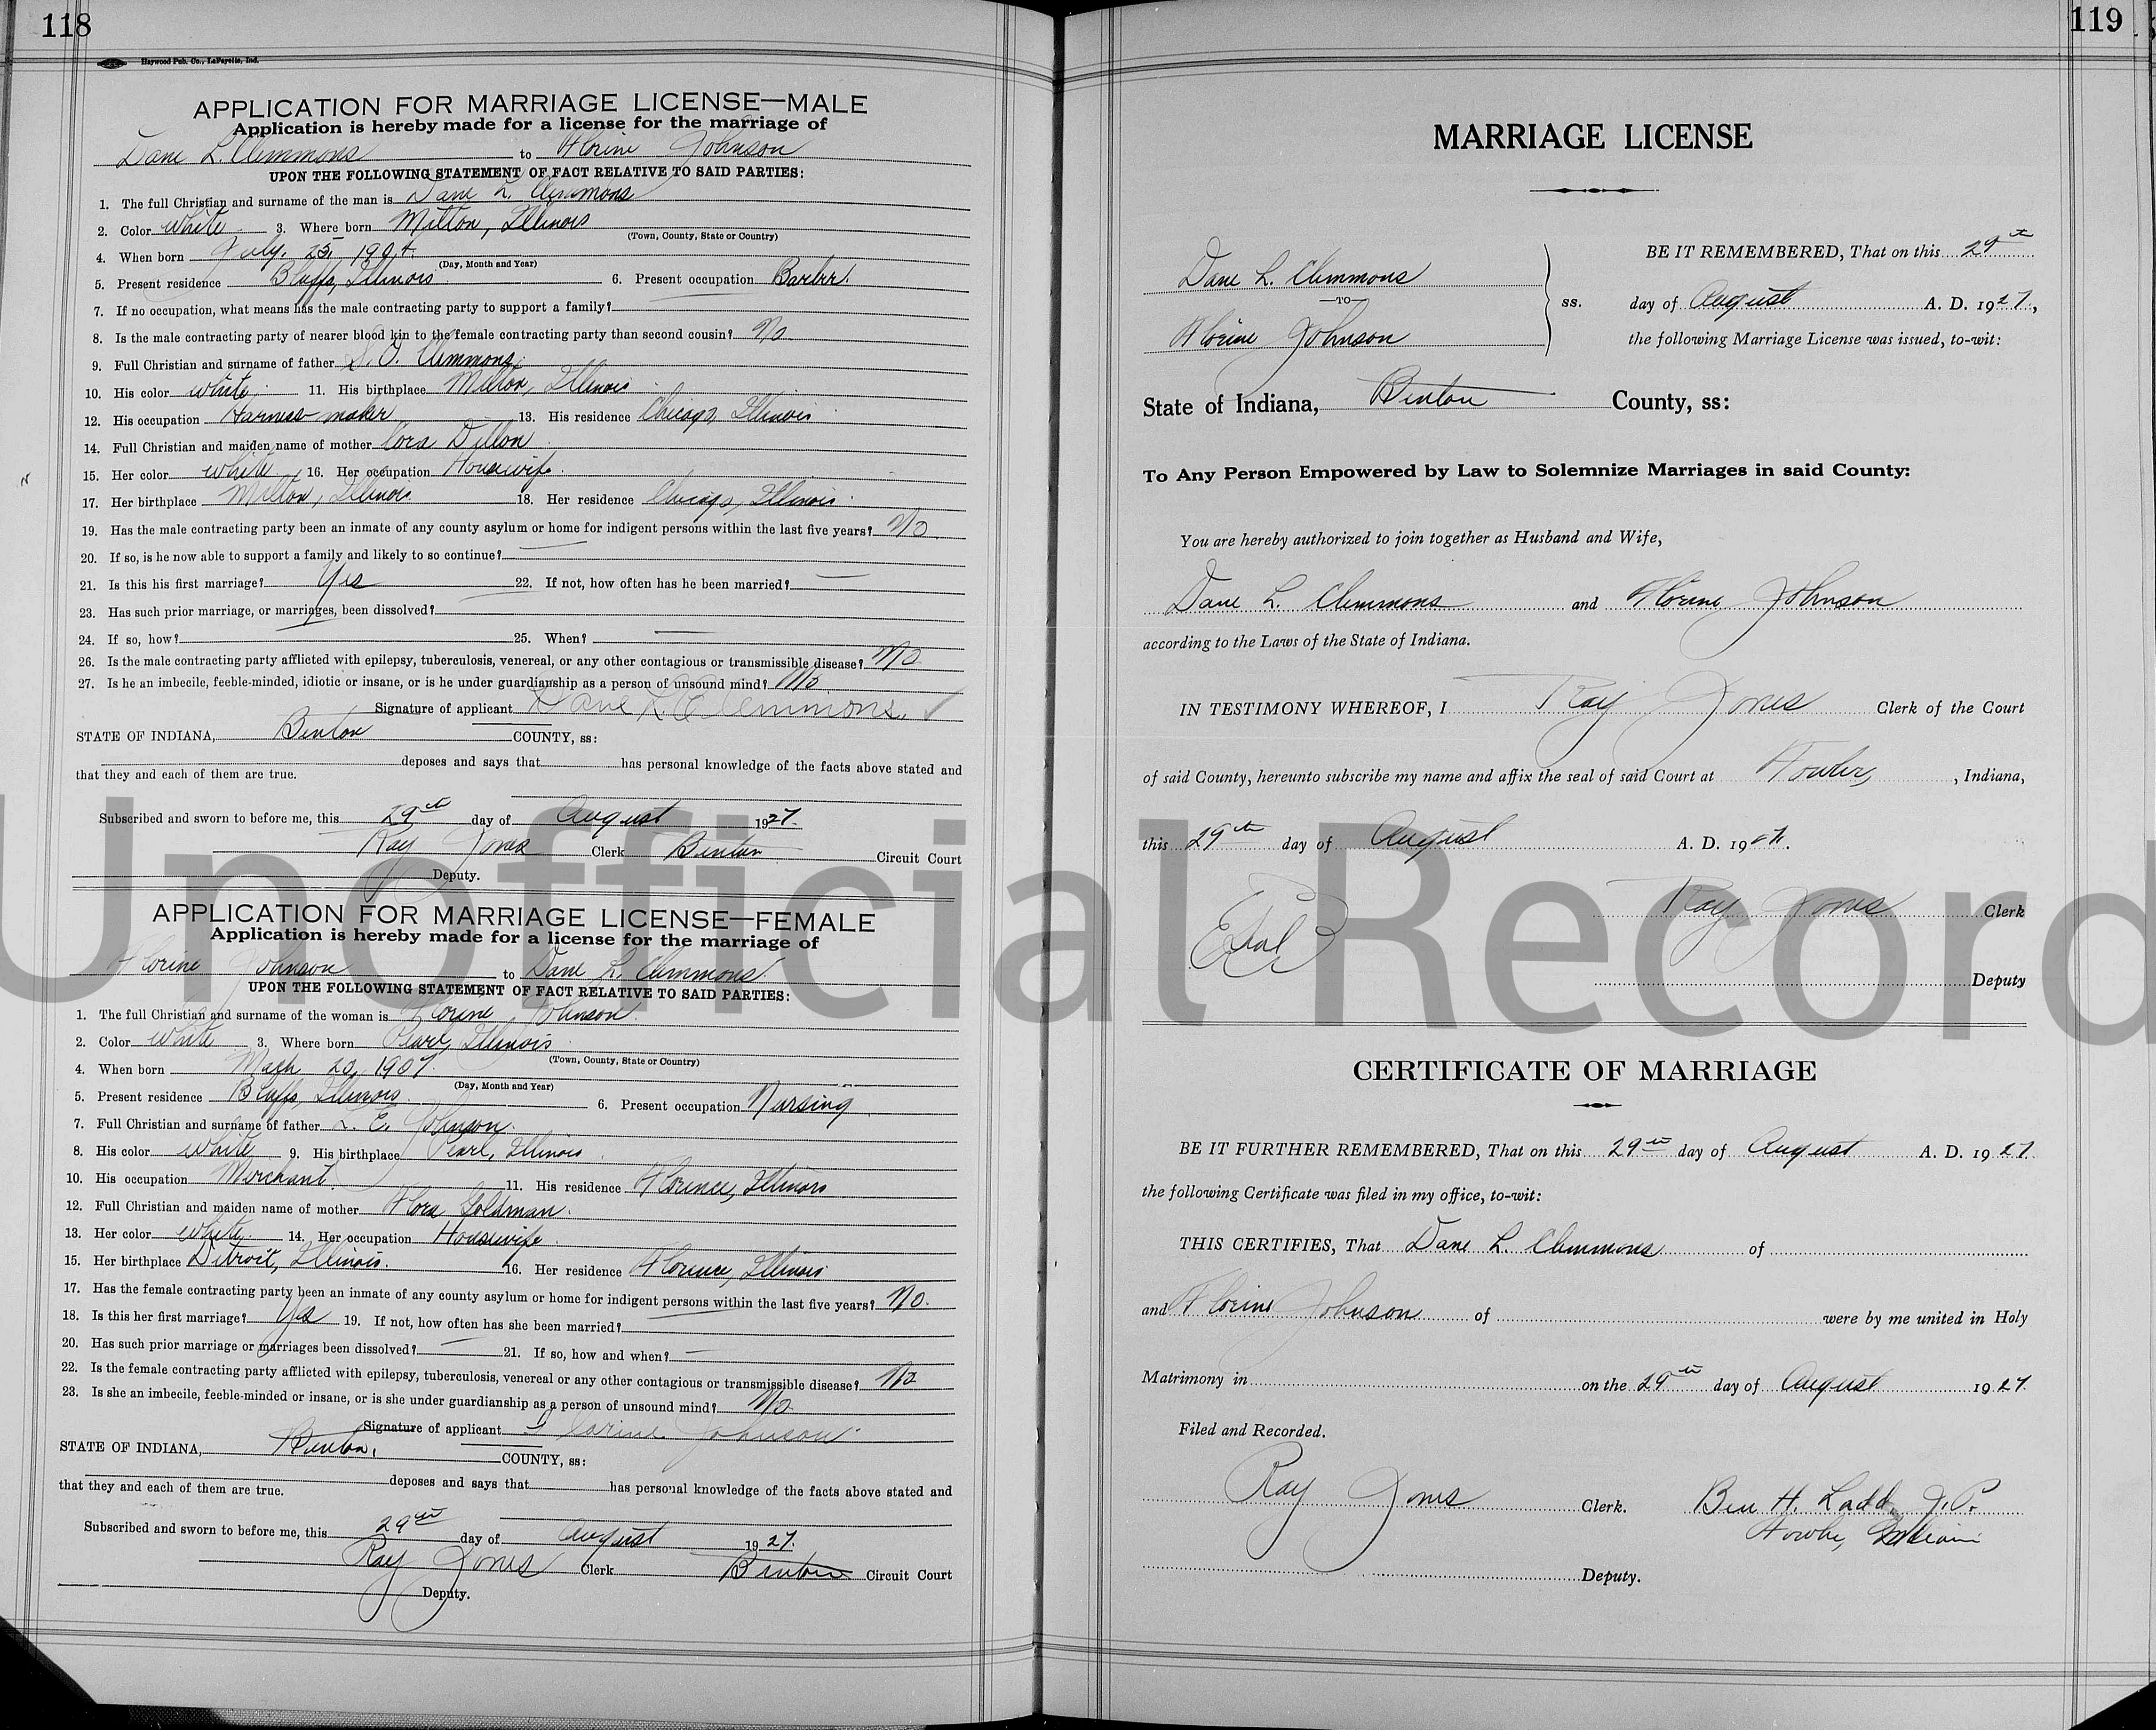 118
Haywood Pub. Co., LaFayette, Ind.
APPLICATION FOR MARRIAGE LICENSE—MALE
Application is hereby made for a license for the marriage of
Dane L. Clemmons to Florine Johnson
UPON THE FOLLOWING STATEMENT OF FACT RELATIVE TO SAID PARTIES:
1. The full Christian and surname of the man is Dane L. Clemmons
2. Color white 3. Where born Milton, Illinois
(Town, County, State or Country)
4. When born July. 25, 1904.
(Day, Month and Year)
5. Present residence Bluffs, Illinois 6. Present occupation Barber.
7. If no occupation, what means has the male contracting party to support a family?
8. Is the male contracting party of nearer blood kin to the female contracting party than second cousin? No
9. Full Christian and surname of father Clemmons.
10. His color white. 11. His birthplace Milton, Illinois
12. His occupation Harness maker 13. His residence Chicago, Illinois
14. Full Christian and maiden name of mother Cora Dillon
15. Her color white 16. Her occupation Housewife.
17. Her birthplace Milton, Illinois 18. Her residence Chicago, Illinois
19. Has the male contracting party been an inmate of any county asylum or home for indigent persons within the last five years? No
20. If so, is he now able to support a family and likely to so continue?
21. Is this his first marriage? Yes 22. If not, how often has he been married?
23. Has such prior marriage, or marriages, been dissolved?
24. If so, how? 25. When?
26. Is the male contracting party afflicted with epilepsy, tuberculosis, venereal, or any other contagious or transmissible disease? No
27. Is he an imbecile, feeble-minded, idiotic or insane, or is he under guardianship as a person of unsound mind? No
Signature of applicant Dane L. Clemmons.
STATE OF INDIANA, Benton COUNTY, ss:
deposes and says that has personal knowledge of the facts above stated and
that they and each of them are true.
Subscribed and sworn to before me, this 29th day of August 1927.
Ray Jones Clerk Benton Circuit Court
Deputy.
APPLICATION FOR MARRIAGE LICENSE—FEMALE
Application is hereby made for a license for the marriage of
Florine Johnson to Dane L. Clemmons
UPON THE FOLLOWING STATEMENT OF FACT RELATIVE TO SAID PARTIES:
1. The full Christian and surname of the woman is Florine Johnson.
2. Color white 3. Where born Pearl, Illinois
(Town, County, State or Country)
4. When born Mach 20, 1907.
(Day, Month and Year)
5. Present residence Bluffs, Illinois. 6. Present occupation Nursing
7. Full Christian and surname of father L. E. Johnson.
8. His color white 9. His birthplace Pearl, Illinois
10. His occupation Merchant. 11. His residence Florence, Illinois
12. Full Christian and maiden name of mother Flora Goldman.
13. Her color white. 14. Her occupation Housewife.
15. Her birthplace Detroit, Illinois. 16. Her residence Florence, Illinois
17. Has the female contracting party been an inmate of any county asylum or home for indigent persons within the last five years? No.
18. Is this her first marriage? Yes 19. If not, how often has she been married?
20. Has such prior marriage or marriages been dissolved? 21. If so, how and when?
22. Is the female contracting party afflicted with epilepsy, tuberculosis, venereal or any other contagious or transmissible disease? No
23. Is she an imbecile, feeble-minded or insane, or is she under guardianship as a person of unsound mind? No
Signature of applicant Florine Johnson
STATE OF INDIANA, Benton, COUNTY, ss:
deposes and says that has personal knowledge of the facts above stated and
that they and each of them are true.
Subscribed and sworn to before me, this 29th day of August 1927.
Ray Jones Clerk Benton Circuit Court
Deputy.
119
MARRIAGE LICENSE
Dane L. Clemmons
TO
Florine Johnson
ss.
BE IT REMEMBERED, That on this 29th
day of August A. D. 1927,
the following Marriage License was issued, to-wit:
State of Indiana, Benton County, ss:
To Any Person Empowered by Law to Solemnize Marriages in said County:
You are hereby authorized to join together as Husband and Wife,
Dane L. Clemmons and Florine Johnson
according to the Laws of the State of Indiana.
IN TESTIMONY WHEREOF, I Ray Jones Clerk of the Court
of said County, hereunto subscribe my name and affix the seal of said Court at Fowler, , Indiana,
this 29th day of August A. D. 1927.
Ray Jones Clerk
Seal
Deputy
CERTIFICATE OF MARRIAGE
BE IT FURTHER REMEMBERED, That on this 29th day of August A. D. 1927.
the following Certificate was filed in my office, to-wit:
THIS CERTIFIES, That Dane L. Clemmons of
and Florine Johnson of were by me united in Holy
Matrimony in on the 29th day of August 1927.
Filed and Recorded.
Ray Jones Clerk. Ben H. Ladd, J.P.
Fowler, Indiana
Deputy.
Unofficial Record